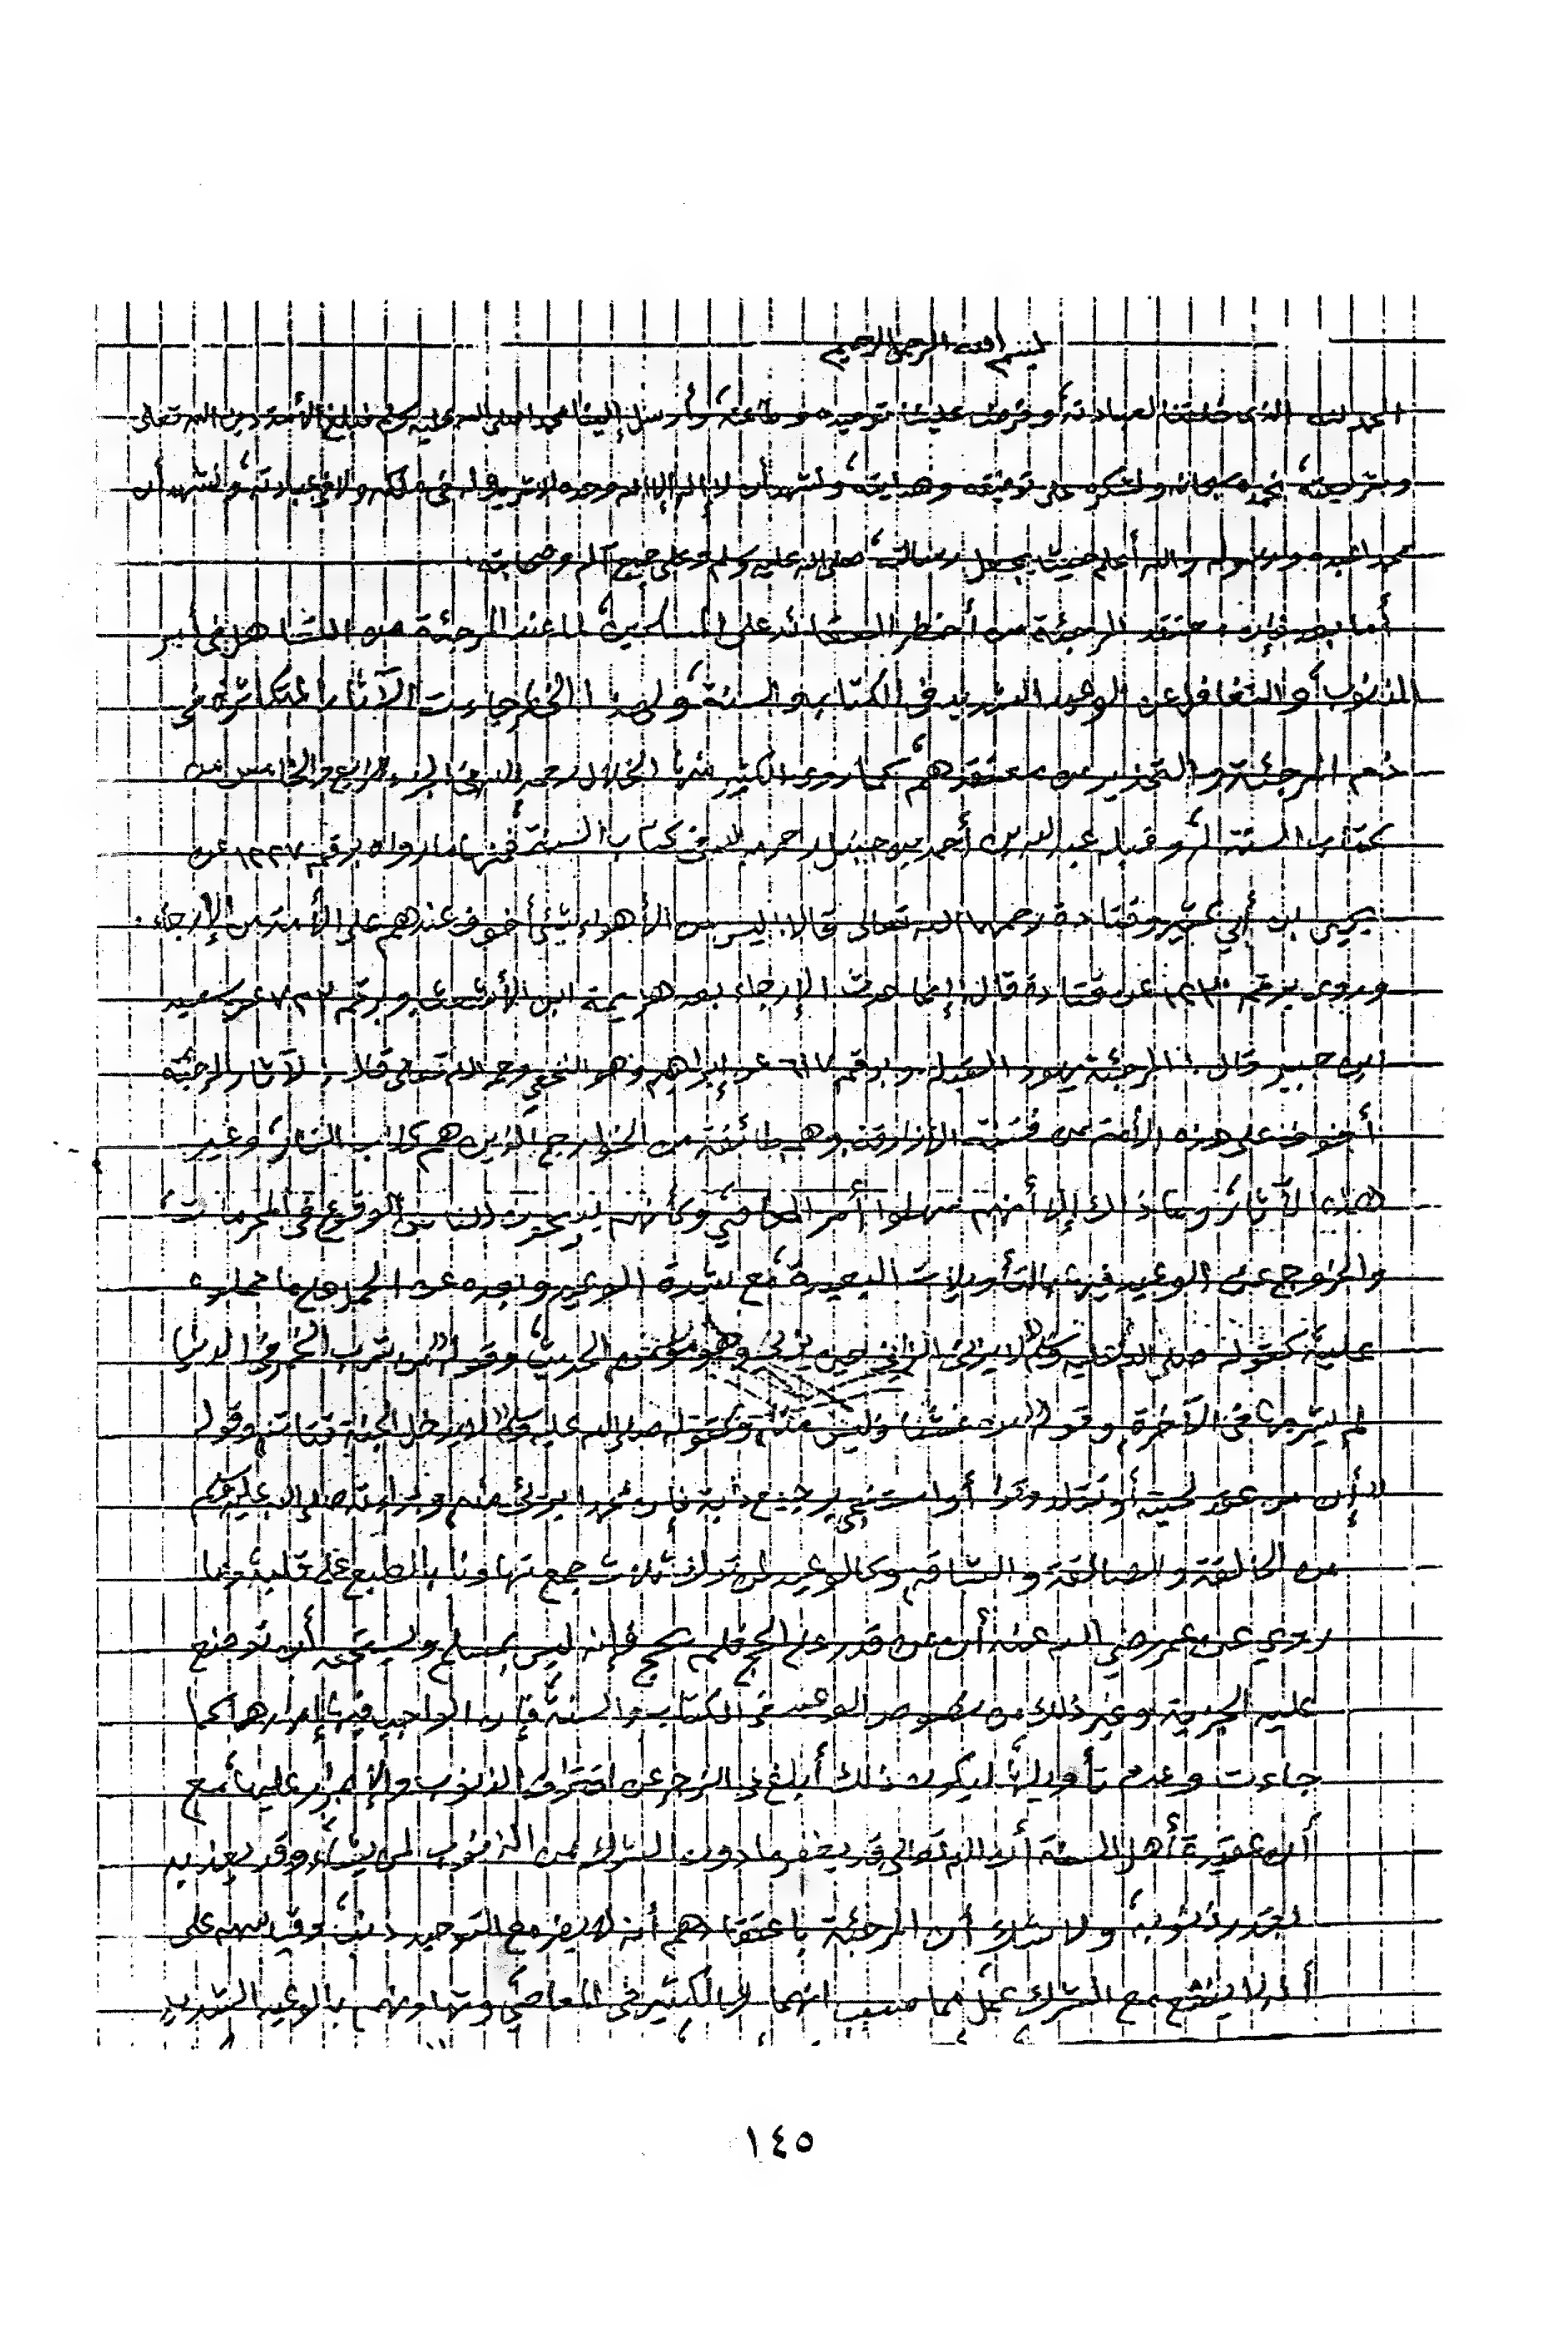 بسم الله الرحمن الرحيم
الحمد لله الذي خلقنا لعبادته، وفرض علينا توحيده وطاعته، وأرسل إلينا محمدا صلى الله عليه وسلم فبلغ الأمة دين الله تعالى
وشريعته، نحمده سبحانه ونشكره على توفيقه وهدايته، ونشهد أن لا إله إلا الله وحده لا شريك له في ملكه ولا في عبادته، ونشهد أن
محمدا عبده ورسوله والله أعلم حيث يجعل رسالته، صلى الله عليه وسلم وعلى جميع آله وصحابته.
أما بعد فإن معتقد المرجئة من أخطر العقائد على المسلمين، لما عند المرجئة من التساهل في أمر
الذنوب، والتغافل عن الوعيد الشديد في الكتاب والسنة، ولهذا الخطر جاءت الآثار المتكاثرة في
ذم المرجئة والتحذير من معتقدهم، كما روى الكثير منها الخلال رحمه الله في الجزء الرابع والخامس من
كتاب السنة له، وقبله عبد الله بن أحمد بن حنبل رحمه الله في كتاب السنة، فمنها ما رواه برقم ١٢٢٧ عن
يحيى بن أبي كثير وقتادة رحمهما الله تعالى قالا: ليس من الأهواء شيء أخوف عندهم على الأمة من الإرجاء.
وروى برقم ١٢٣٠ عن قتادة قال: إنما حدث الإرجاء بعد هزيمة ابن الأشعث، وبرقم ٧٢٣ عن سعيد
ابن جبير قال: المرجئة يهود القبلة، وبرقم ٦١٧ عن إبراهيم وهو النخعي رحمه الله تعالى قال: لآثار المرجئة
أخوف على هذه الأمة من فتنة الأزارقة، وهم طائفة من الخوارج الذين هم كلاب النار، وغير
هذه الآثار، وما ذاك إلا أنهم سهلوا أمر المعاصي، وكأنهم يبيحون للناس الوقوع في المحرمات،
والخروج عن الوعيد فيها بالتأويلات البعيدة، مع شدة الوعيد وبعده عن الحمل على ما حملوه
عليه، كقوله صلى الله عليه وسلم "لا يزني الزاني حين يزني وهو مؤمن" الحديث، وقوله "من شرب الخمر في الدنيا
لم يشربها في الآخرة" وقوله "من غشنا فليس منا" وكقوله صلى الله عليه وسلم "لا يدخل الجنة قتات" وقوله
"إن من عقد لحيته أو تقلد وترا أو استنجى برجيع دابة فإن محمدا بريء منه" وبراءته صلى الله عليه وسلم
من الحالقة والصالقة والشاقة، وكالوعيد لمن ترك ثلاث جمع تهاونا بالطبع على قلبه، وما
روي عن عمر رضي الله عنه أن من قدر على الحج فلم يحج فإنه ليس بمسلم ويستحق أن توضع
عليه الجزية، وغير ذلك من نصوص الوعيد في الكتاب والسنة، فإن الواجب فيها إمرارها كما
جاءت وعدم تأويلها، ليكون ذلك أبلغ في الزجر عن اقتراف الذنوب والإصرار عليها، مع
أن عقيدة أهل السنة أن الله تعالى قد يغفر ما دون الشرك من الذنوب لمن يشاء، وقد يعذبه
بقدر ذنوبه، ولا شك أن المرجئة باعتقادهم أنه لا يضر مع التوحيد ذنب، وقياسهم على
أنه لا ينفع مع الشرك عمل، مما سبب انهماك الكثير في المعاصي، وتهاونهم بالوعيد الشديد
١٤٥